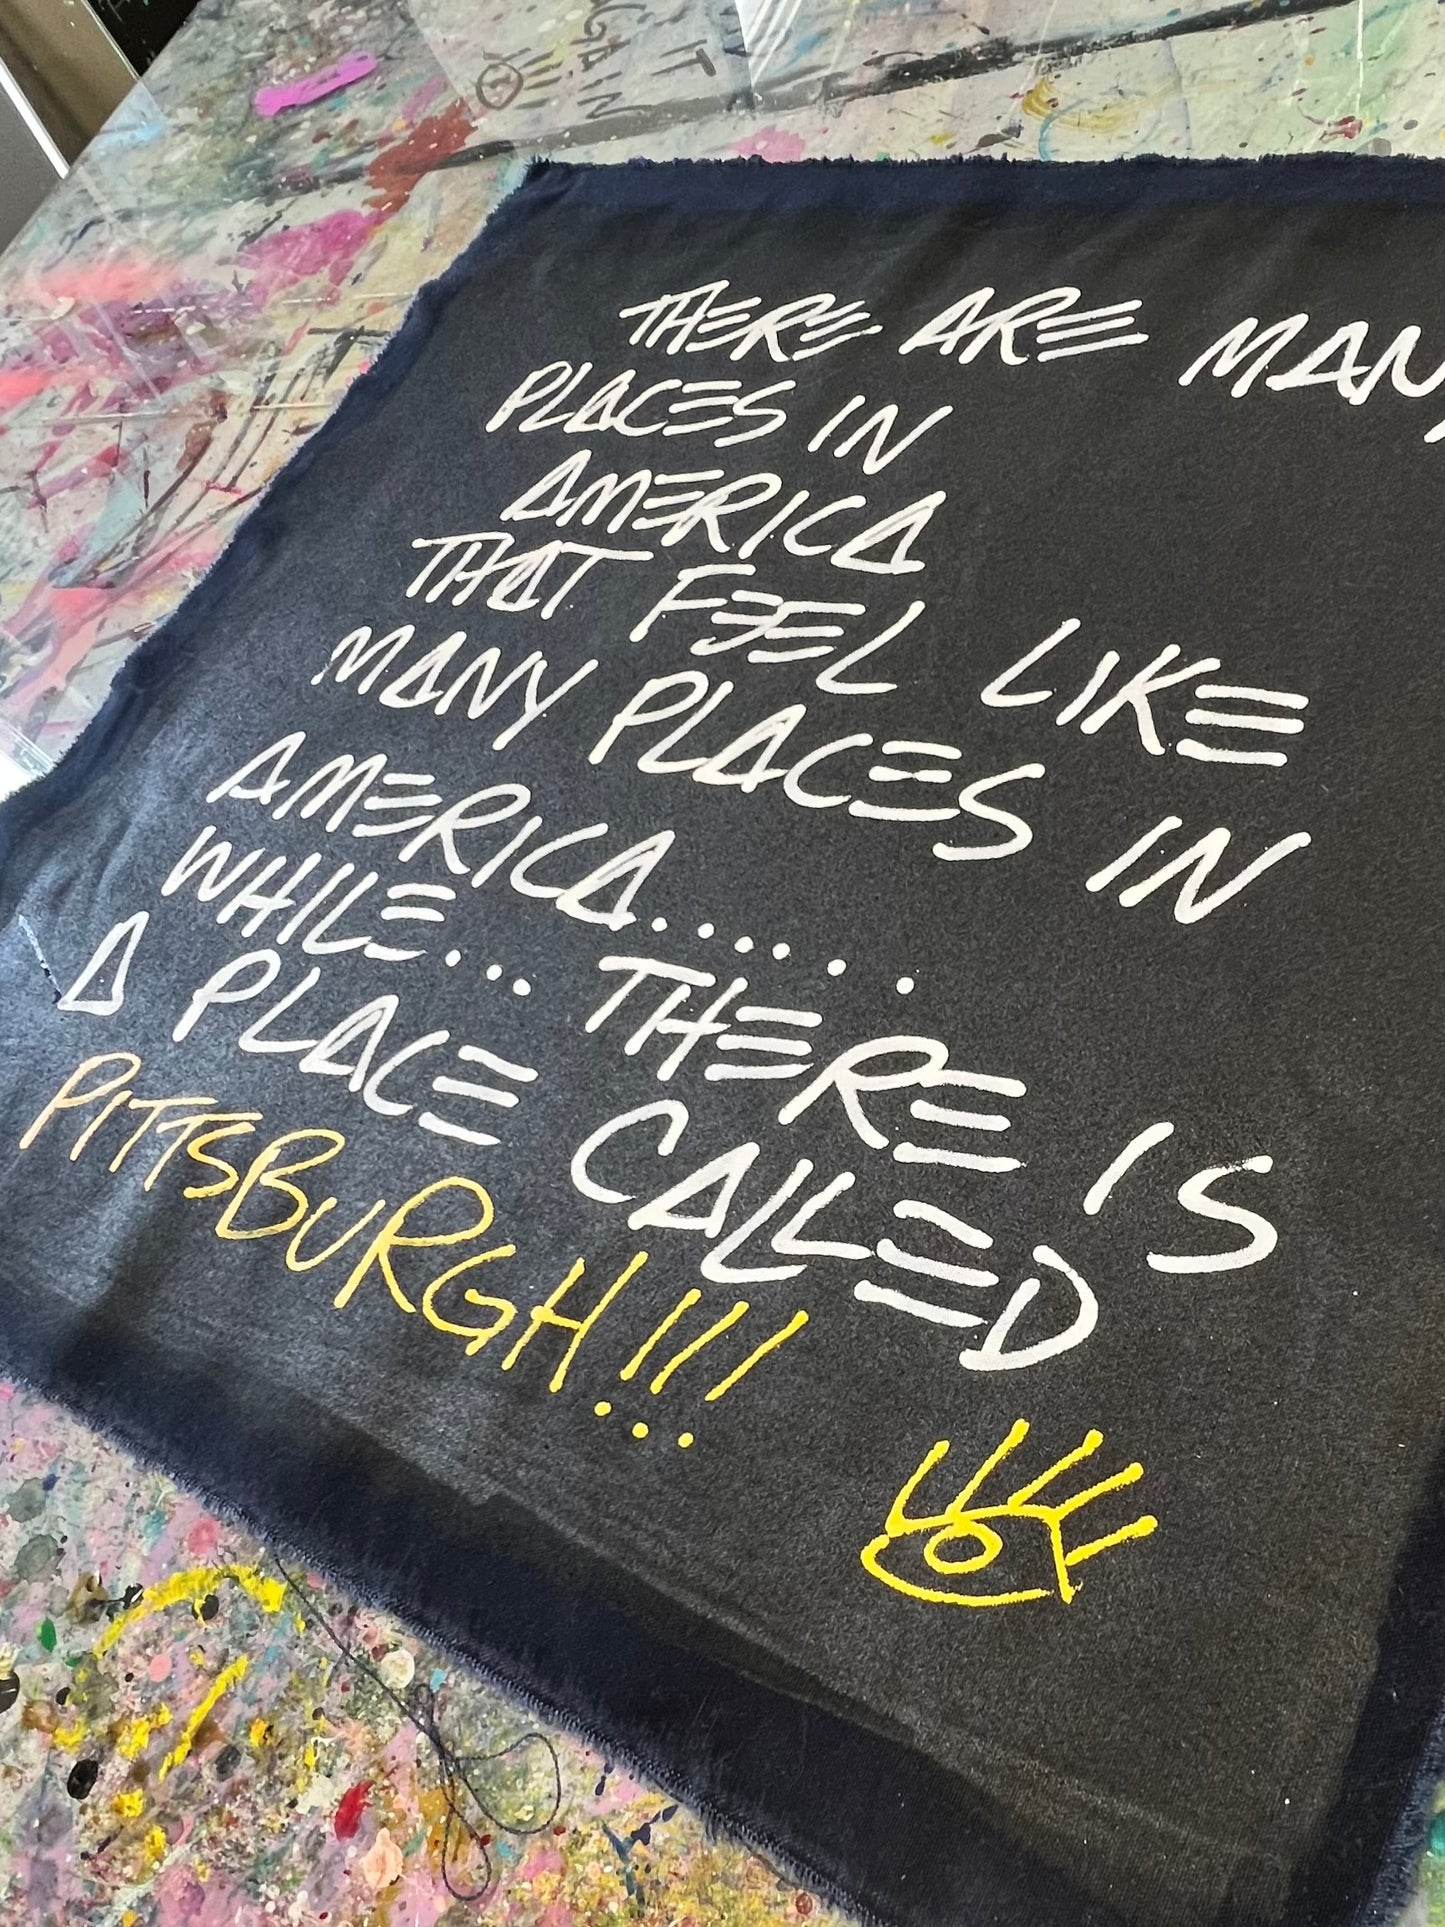 IT
AGAIN
THERE ARE MANY
PLACES IN
AMERICA
THAT FEEL LIKE
MANY PLACES IN
AMERICA......
WHILE... THERE IS
A PLACE CALLED
PITTSBURGH!!!